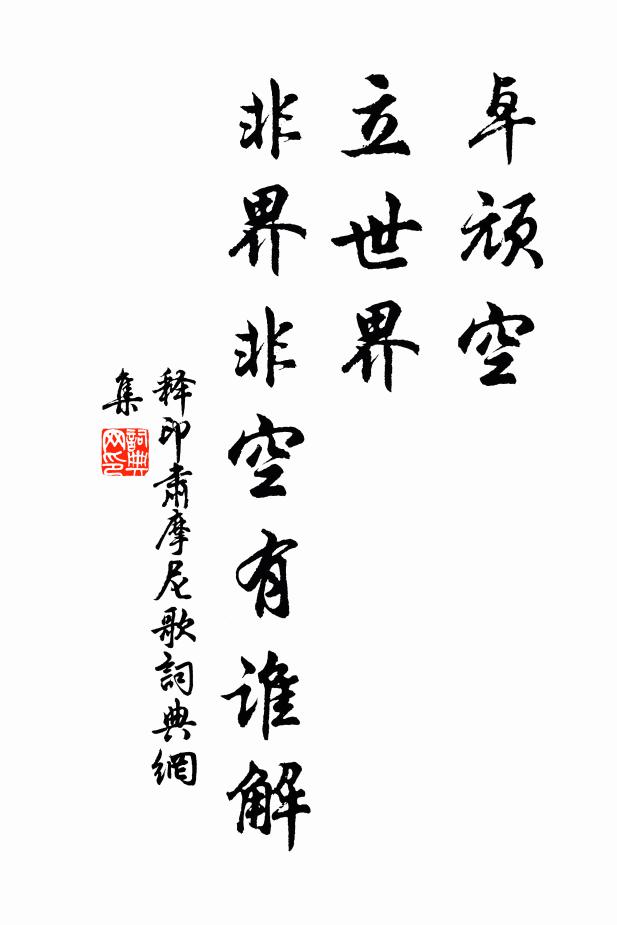 卓顽空
立世界
非界非空有谁解
释印肃摩尼歌詞典網
集
詞典网印